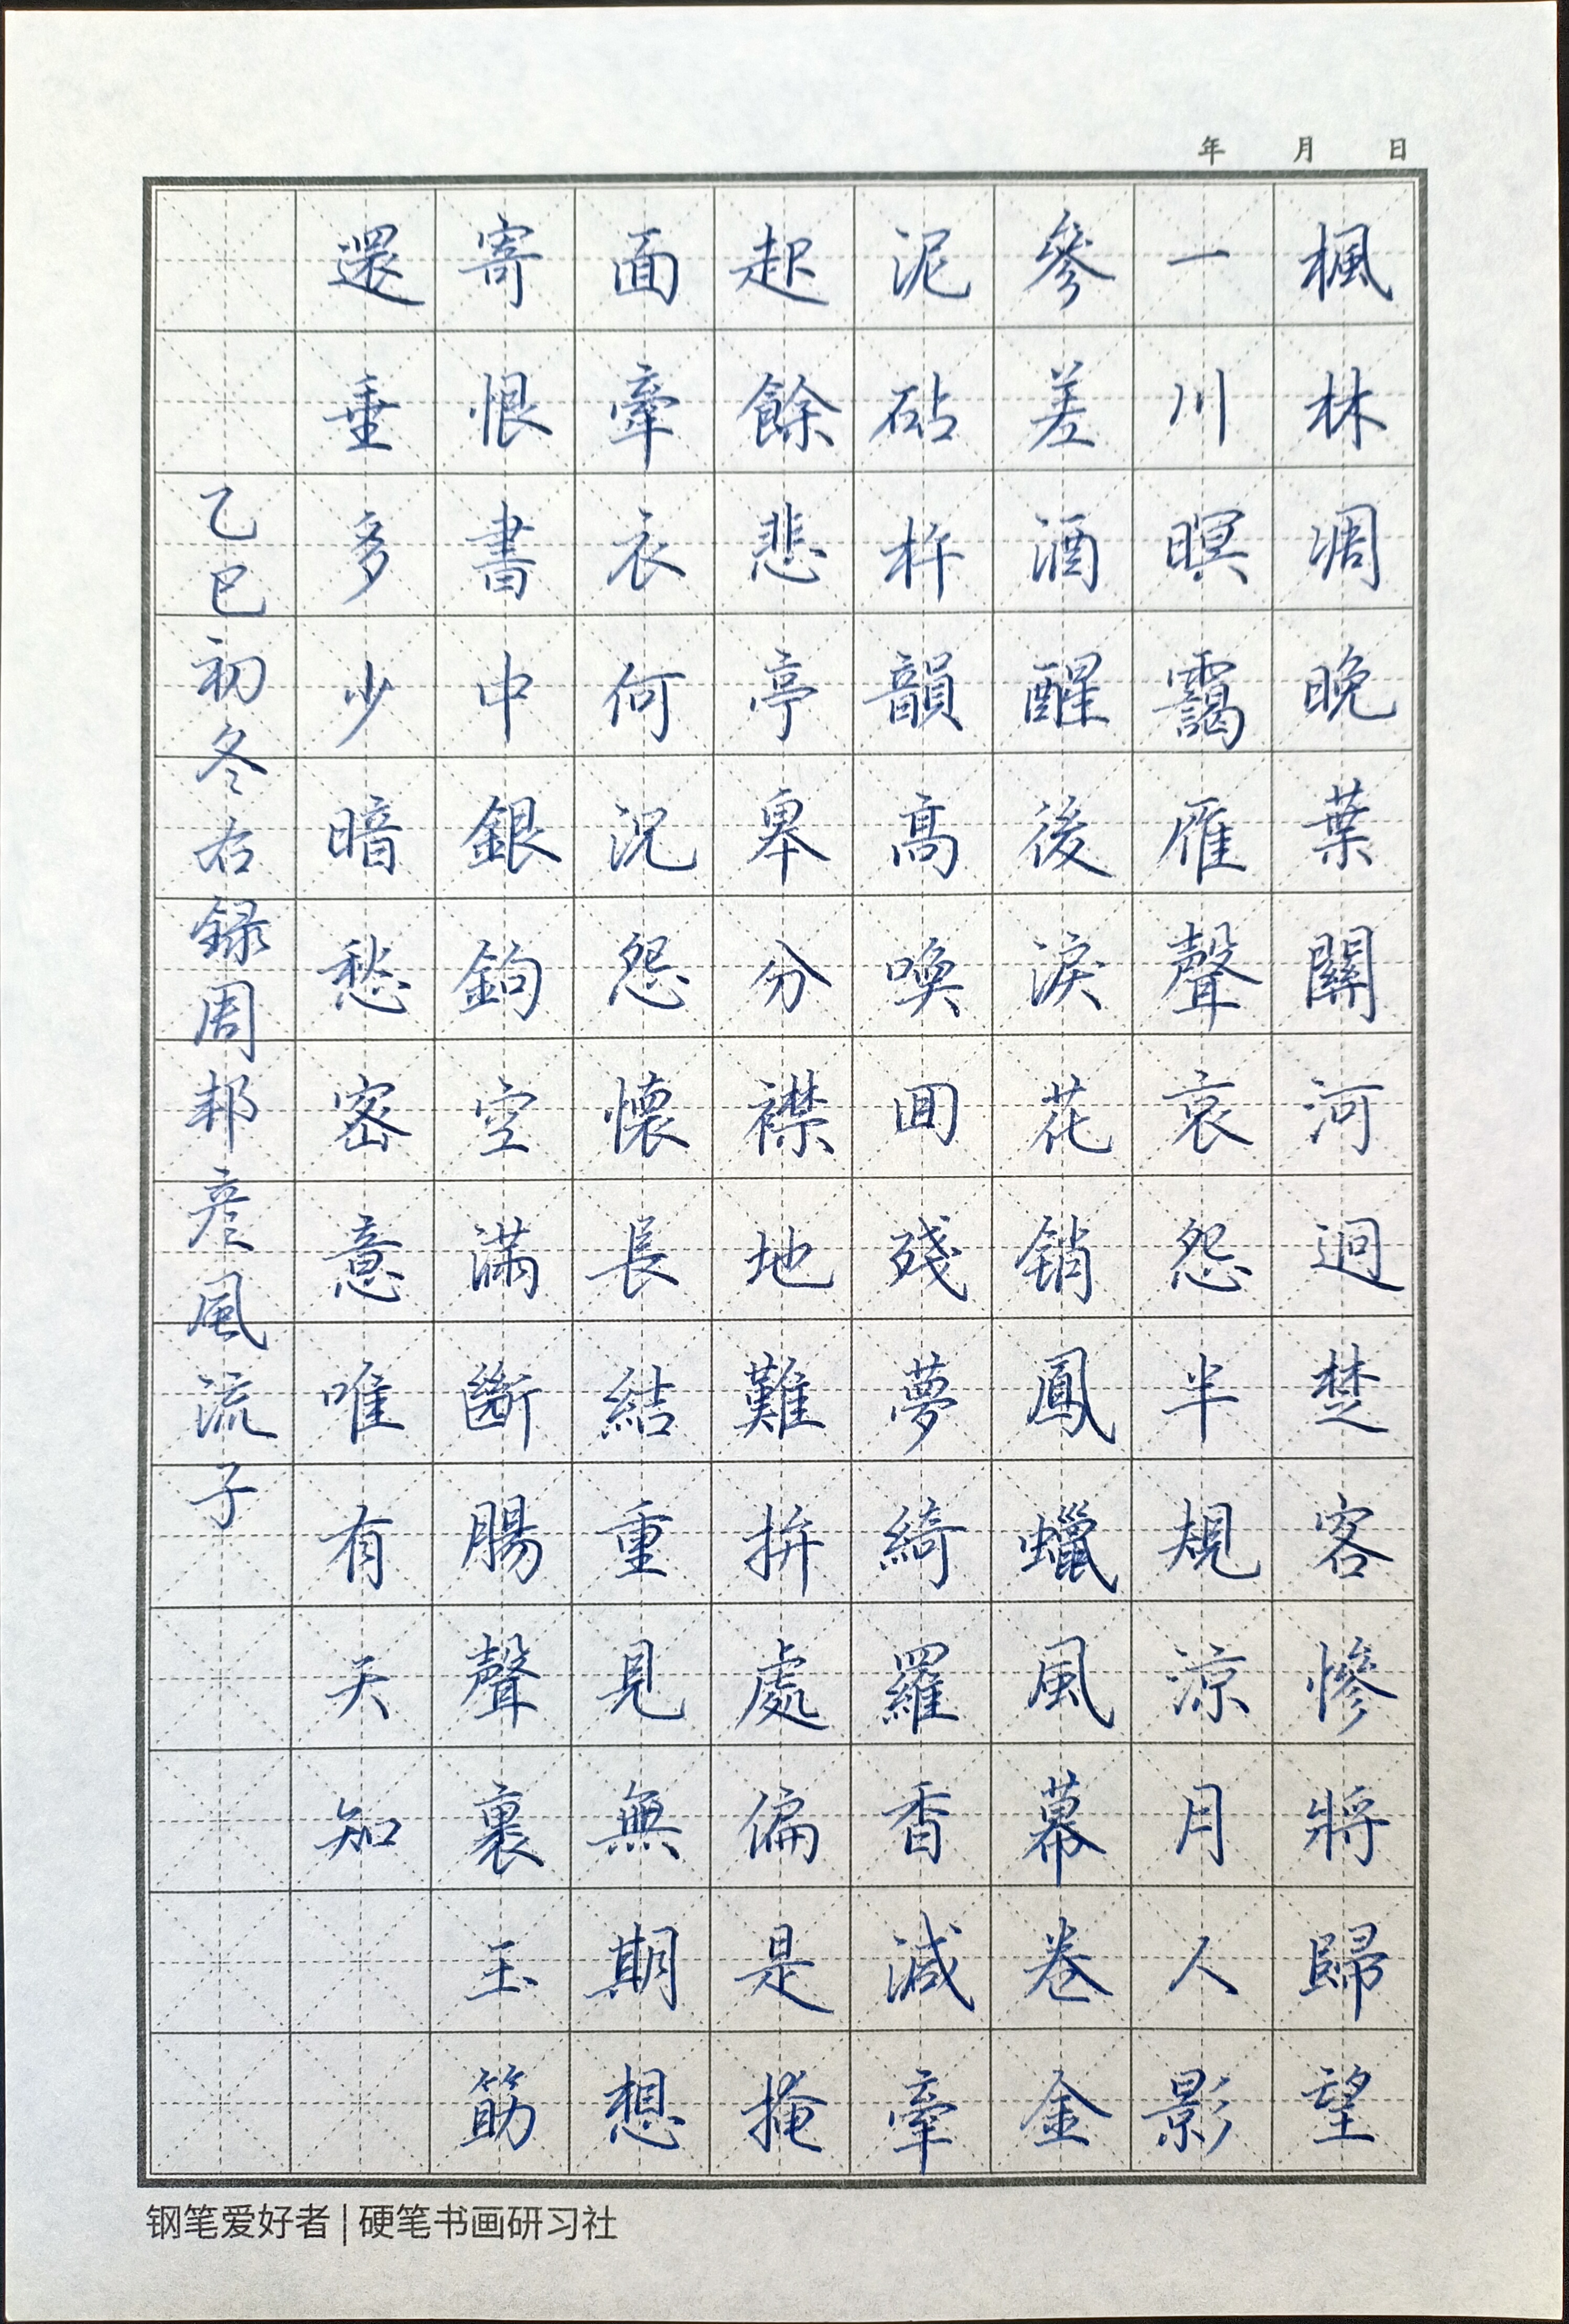 年 月 日
楓林凋晚葉關河迥楚客慘將歸望
一川暝靄雁聲哀怨半規涼月人影
參差酒醒後淚花销鳳蠟風幕卷金
泥砧杵韻高喚回殘夢綺羅香減牽
起餘悲亭皋分襟地難拚處偏是掩
面牽衣何況怨懷長結重見無期想
寄恨書中銀鉤空滿斷腸聲裏玉筯
還垂多少暗愁密意唯有天知
乙巳初冬右録周邦彦風流子
钢笔爱好者|硬笔书画研习社